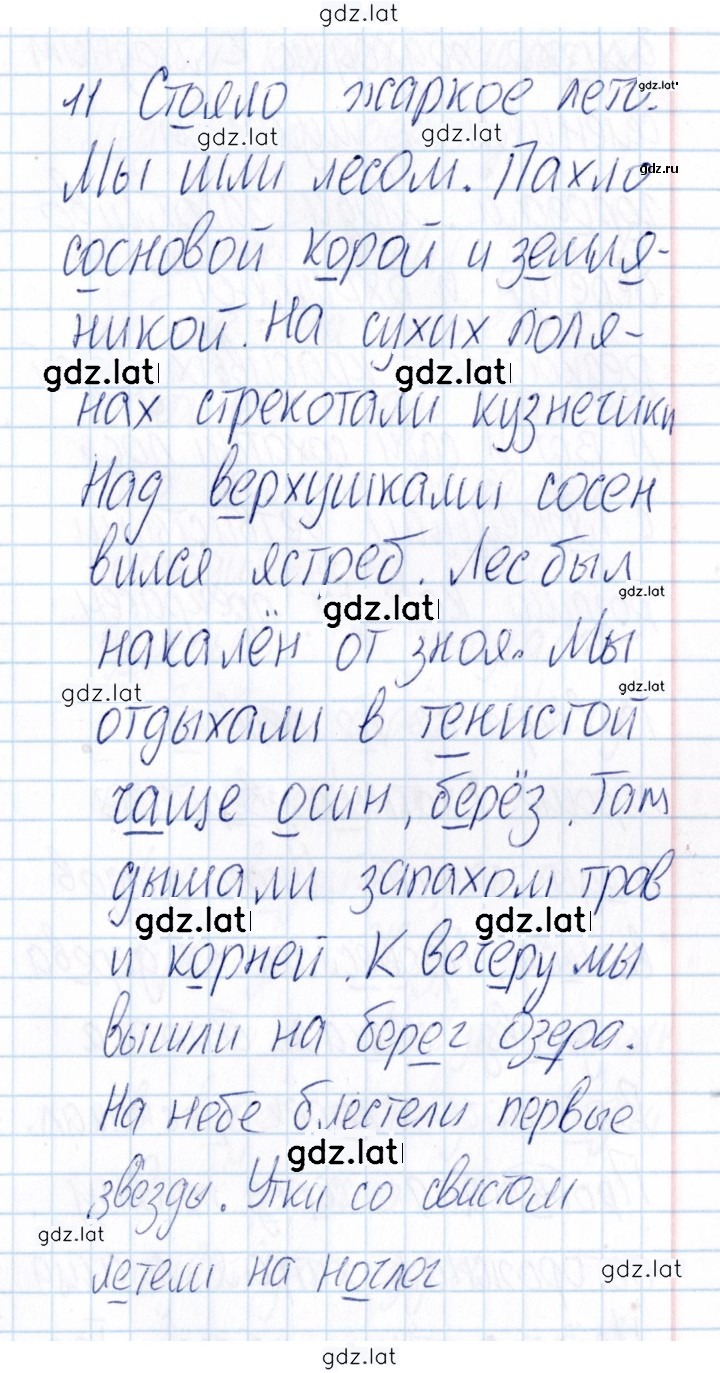 gdz.lat
11 Стояло жаркое лето.
gdz.lat
gdz.lat gdz.lat
Мы шли лесом. Пахло
gdz.ru
сосновой корой и земля-
никой. На сухих поля-
gdz.lat gdz.lat
нах стрекотали кузнечики
Над верхушками сосен
вился ястреб. Лес был
gdz.lat gdz.lat
накалён от зноя. Мы
gdz.lat gdz.lat
отдыхали в тенистой
чаще осин, берёз. Там
дышали запахом трав
gdz.lat gdz.lat
и корней. К вечеру мы
вышли на берег озера.
На небе блестели первые
gdz.lat
звезды. Утки со свистом
gdz.lat
летели на ночлег
gdz.lat
gdz.lat